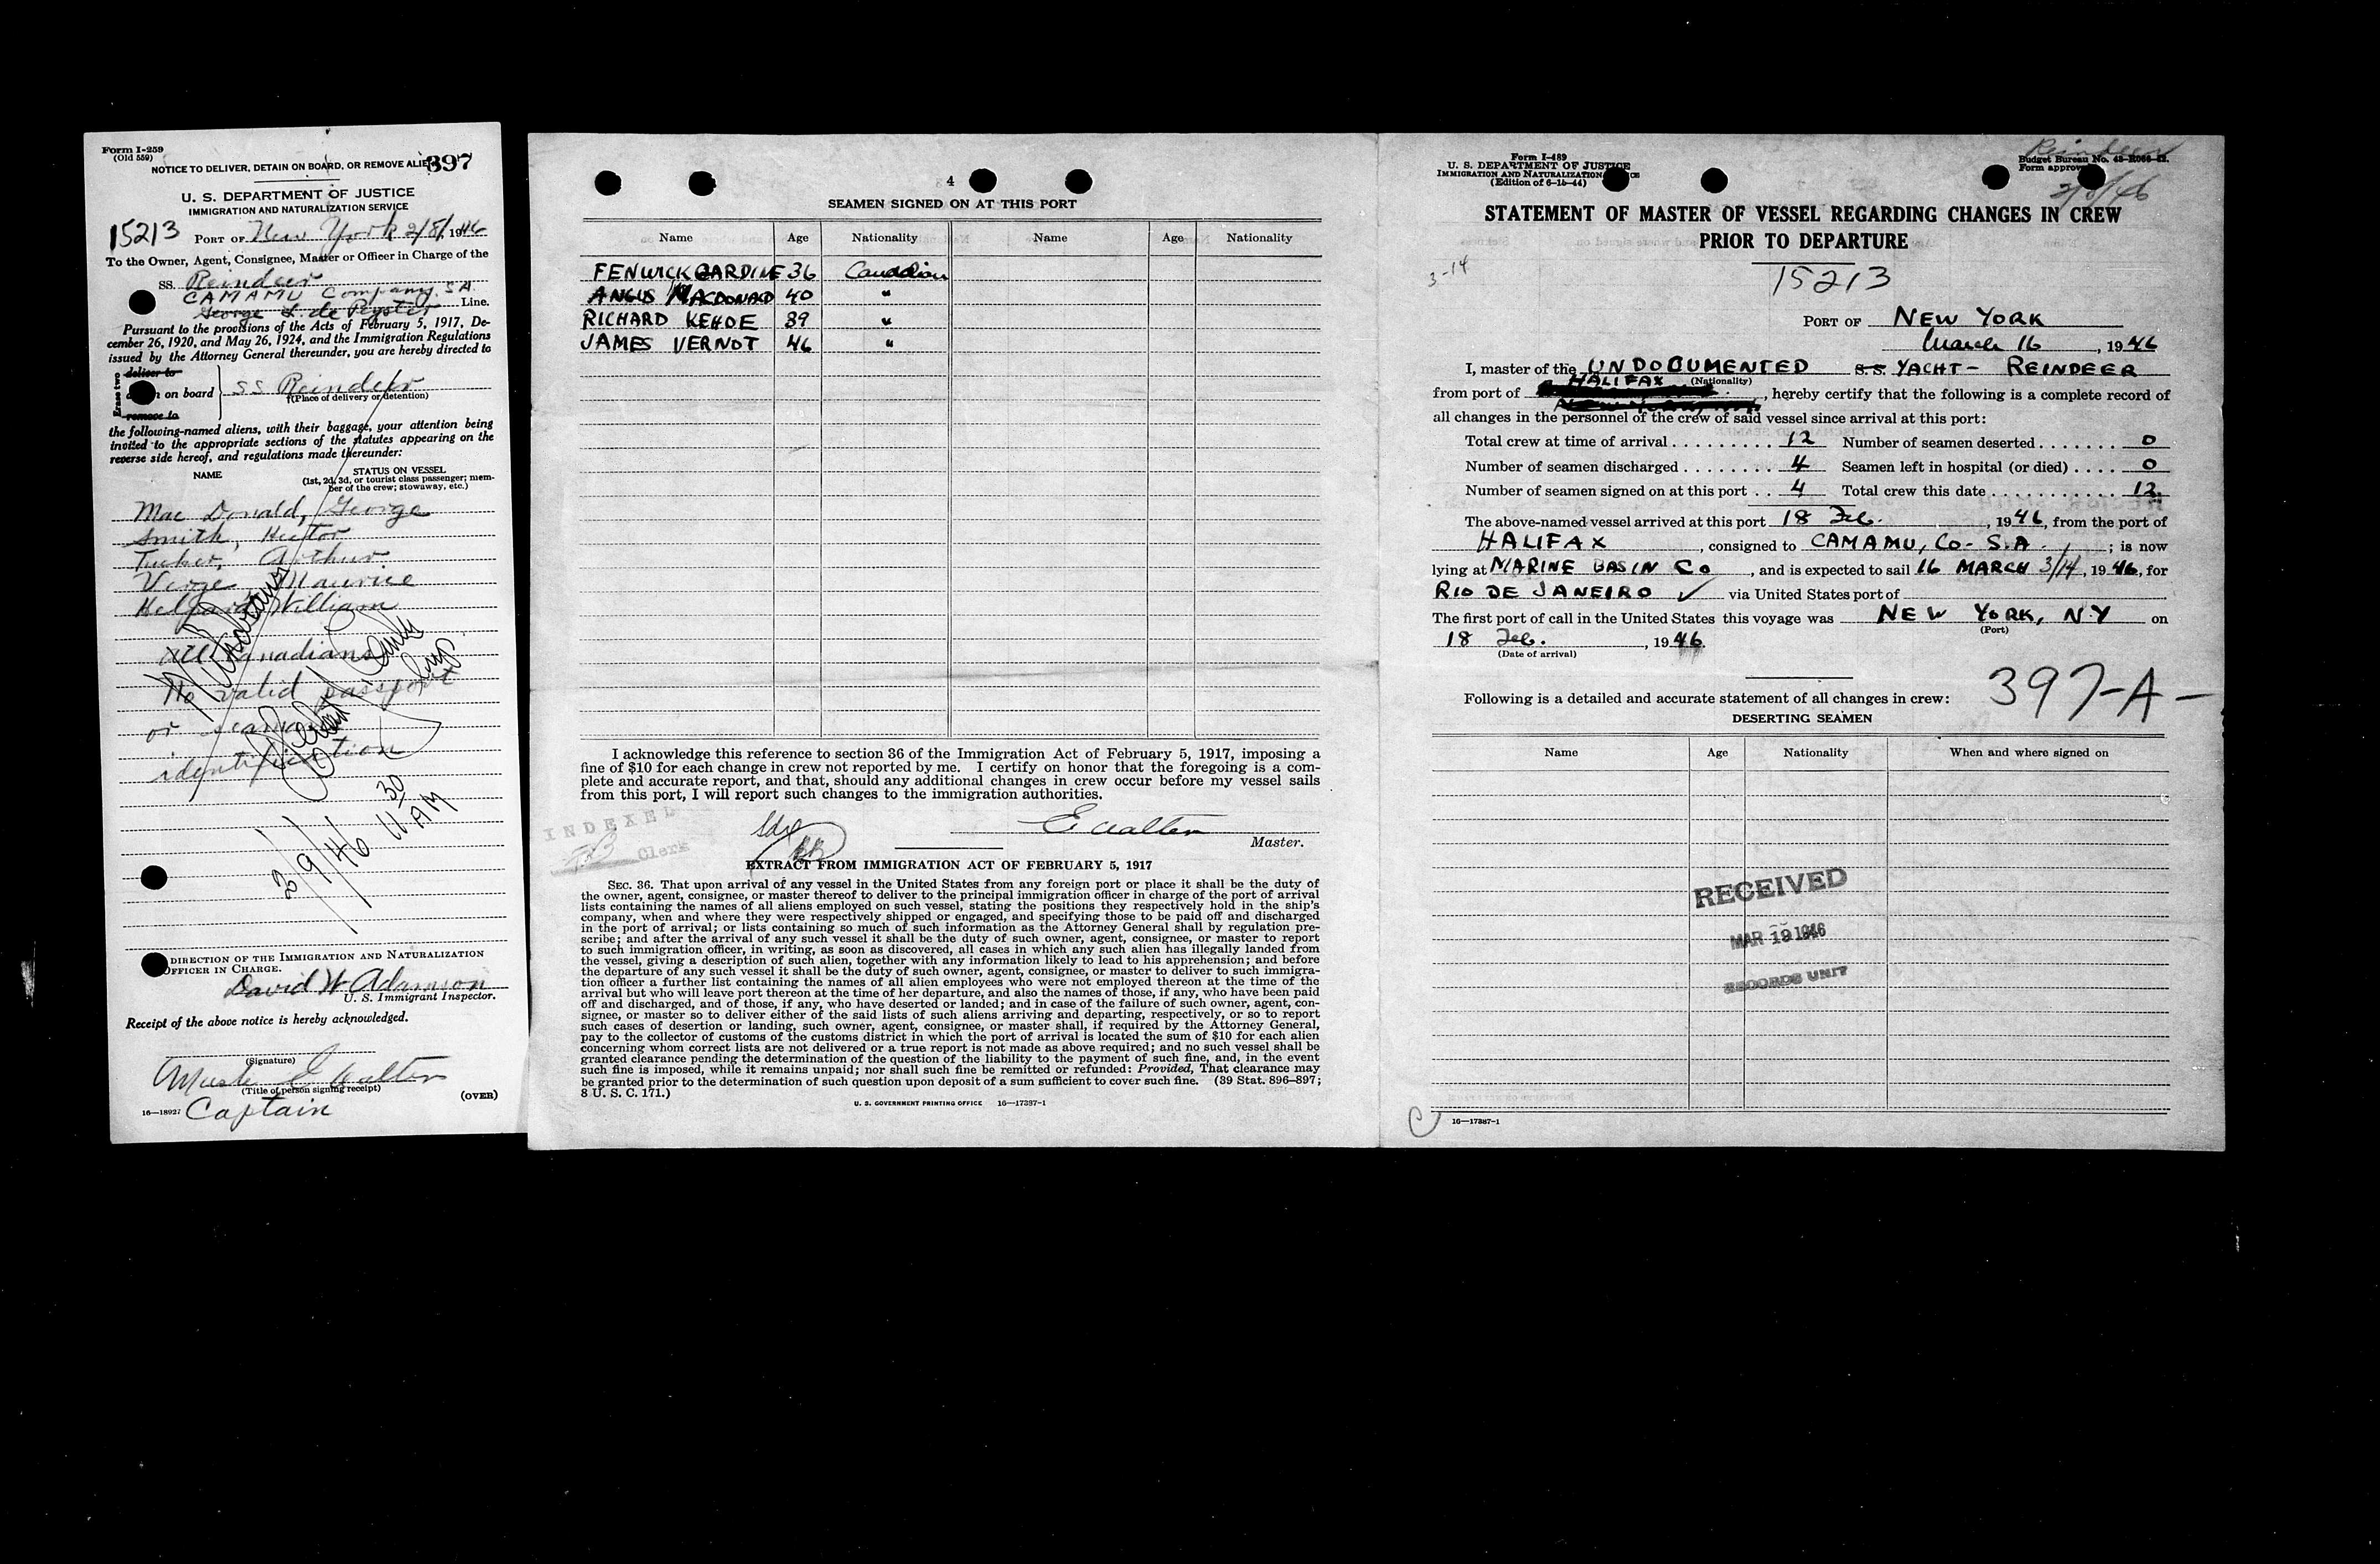 Form I-259
(Old 559)
NOTICE TO DELIVER, DETAIN ON BOARD, OR REMOVE ALIE
397
U. S. DEPARTMENT OF JUSTICE
IMMIGRATION AND NATURALIZATION SERVICE
15213 PORT OF New York 2/8/, 1946
To the Owner, Agent, Consignee, Master or Officer in Charge of the
SS. Reindeer
CAMAMU Company. S A Line.
George L. de Peyster
Pursuant to the provisions of the Acts of February 5, 1917, De-
cember 26, 1920, and May 26, 1924, and the Immigration Regulations
issued by the Attorney General thereunder, you are hereby directed to
Erase two
deliver to
n on board
remove to
SS Reindeer
(Place of delivery or detention)
the following-named aliens, with their baggage, your attention being
invited to the appropriate sections of the statutes appearing on the
reverse side hereof, and regulations made thereunder:
NAME
STATUS ON VESSEL
(1st, 2d, 3d, or tourist class passenger; mem-
ber of the crew; stowaway, etc.)
Mac Donald, George
Smith, Hector
Tucker, Arthur
Verge Maurice
William
All Canadians
No valid passport
or seaman
identification
2/9/46 11 30 AM
DIRECTION OF THE IMMIGRATION AND NATURALIZATION
OFFICER IN CHARGE.
David W Adamson
U. S. Immigrant Inspector.
Receipt of the above notice is hereby acknowledged.
(Signature)
E Walter
(Title of person signing receipt)
Captain
(OVER)
16—18927
4
SEAMEN SIGNED ON AT THIS PORT
Name Age Nationality Name Age Nationality
FENWICK GARDINE 36 Canadian
ANGUS MACDONALD 40 "
RICHARD KEHOE 39 "
JAMES VERNOT 46 "
I acknowledge this reference to section 36 of the Immigration Act of February 5, 1917, imposing a
fine of $10 for each change in crew not reported by me. I certify on honor that the foregoing is a com-
plete and accurate report, and that, should any additional changes in crew occur before my vessel sails
from this port, I will report such changes to the immigration authorities.
INDEXED
Clerk
E Walter
Master.
EXTRACT FROM IMMIGRATION ACT OF FEBRUARY 5, 1917
SEC. 36. That upon arrival of any vessel in the United States from any foreign port or place it shall be the duty of
the owner, agent, consignee, or master thereof to deliver to the principal immigration officer in charge of the port of arrival
lists containing the names of all aliens employed on such vessel, stating the positions they respectively hold in the ship's
company, when and where they were respectively shipped or engaged, and specifying those to be paid off and discharged
in the port of arrival; or lists containing so much of such information as the Attorney General shall by regulation pre-
scribe; and after the arrival of any such vessel it shall be the duty of such owner, agent, consignee, or master to report
to such immigration officer, in writing, as soon as discovered, all cases in which any such alien has illegally landed from
the vessel, giving a description of such alien, together with any information likely to lead to his apprehension; and before
the departure of any such vessel it shall be the duty of such owner, agent, consignee, or master to deliver to such immigra-
tion officer a further list containing the names of all alien employees who were not employed thereon at the time of the
arrival but who will leave port thereon at the time of her departure, and also the names of those, if any, who have been paid
off and discharged, and of those, if any, who have deserted or landed; and in case of the failure of such owner, agent, con-
signee, or master so to deliver either of the said lists of such aliens arriving and departing, respectively, or so to report
such cases of desertion or landing, such owner, agent, consignee, or master shall, if required by the Attorney General,
pay to the collector of customs of the customs district in which the port of arrival is located the sum of $10 for each alien
concerning whom correct lists are not delivered or a true report is not made as above required; and no such vessel shall be
granted clearance pending the determination of the question of the liability to the payment of such fine, and, in the event
such fine is imposed, while it remains unpaid; nor shall such fine be remitted or refunded: Provided, That clearance may
be granted prior to the determination of such question upon deposit of a sum sufficient to cover such fine. (39 Stat. 896-897;
8 U. S. C. 171.)
U. S. GOVERNMENT PRINTING OFFICE 16—17387-1
Form I-489
U. S. DEPARTMENT OF JUSTICE
IMMIGRATION AND NATURALIZATION
(Edition of 6-15-44)
Reindeer
Budget Bureau No.
Form approv
2/8/46
STATEMENT OF MASTER OF VESSEL REGARDING CHANGES IN CREW
PRIOR TO DEPARTURE
3-14
15213
PORT OF NEW YORK
March 16, 1946
I, master of the UNDOCUMENTED S.S. YACHT- REINDEER
(Nationality)
from port of HALIFAX, hereby certify that the following is a complete record of
all changes in the personnel of the crew of said vessel since arrival at this port:
Total crew at time of arrival 12 Number of seamen deserted 0
Number of seamen discharged 4 Seamen left in hospital (or died) 0
Number of seamen signed on at this port 4 Total crew this date 12
The above-named vessel arrived at this port 18 Feb., 1946, from the port of
HALIFAX, consigned to CAMAMU, CO- S.A.; is now
lying at MARINE BASIN CO, and is expected to sail 16 MARCH 3/14, 1946, for
RIO DE JANEIRO ✓ via United States port of
The first port of call in the United States this voyage was NEW YORK, NY on
(Port)
18 Feb., 1946.
(Date of arrival)
397-A-
Following is a detailed and accurate statement of all changes in crew:
DESERTING SEAMEN
Name Age Nationality When and where signed on
RECEIVED
MAR 19 1946
RECORDS UNIT
C
16—17387-1